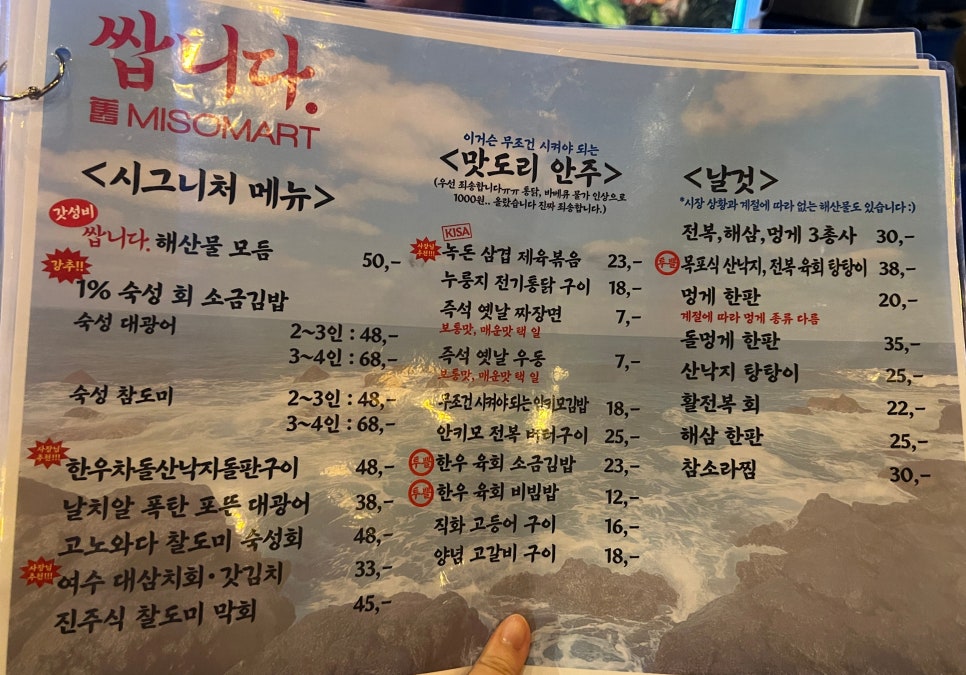 쌉니다.
舊 MISOMART
<시그니처 메뉴>
갓성비
쌉니다. 해산물 모듬 50,-
강추!!
1% 숙성 회 소금김밥
숙성 대광어 2~3인 : 48,-
3~4인 : 68,-
숙성 참도미 2~3인 : 48,-
3~4인 : 68,-
사장님 추천!!!
한우차돌산낙지돌판구이 48,-
날치알 폭탄 포뜬 대광어 38,-
고노와다 찰도미 숙성회 48,-
사장님 추천!!!
여수 대삼치회·갓김치 33,-
진주식 찰도미 막회 45,-
이거슨 무조건 시켜야 되는
<맛도리 안주>
(우선 죄송합니다ㅠㅠ 통닭, 바베큐 물가 인상으로
1000원.. 올랐습니다 진짜 죄송합니다.)
KISA
사장님 추천!!!
녹돈 삼겹 제육볶음 23,-
누룽지 전기통닭 구이 18,-
즉석 옛날 짜장면 7,-
보통맛, 매운맛 택 일
즉석 옛날 우동 7,-
보통맛, 매운맛 택 일
무조건 시켜야 되는 안키모김밥 18,-
안키모 전복 버터구이 25,-
투뿔 한우 육회 소금김밥 23,-
투뿔 한우 육회 비빔밥 12,-
직화 고등어 구이 16,-
양념 고갈비 구이 18,-
<날것>
*시장 상황과 계절에 따라 없는 해산물도 있습니다 :)
전복,해삼,멍게 3총사 30,-
투뿔 목포식 산낙지, 전복 육회 탕탕이 38,-
멍게 한판 20,-
계절에 따라 멍게 종류 다름
돌멍게 한판 35,-
산낙지 탕탕이 25,-
활전복 회 22,-
해삼 한판 25,-
참소라찜 30,-